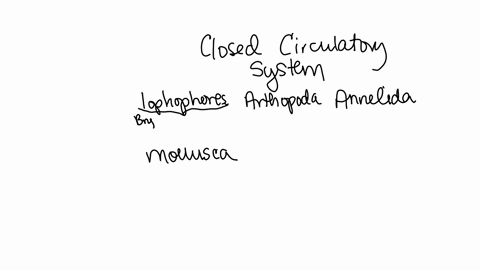 Closed Circulatory
System
lophophores Arthopoda Annelida
Bry
Mollusca